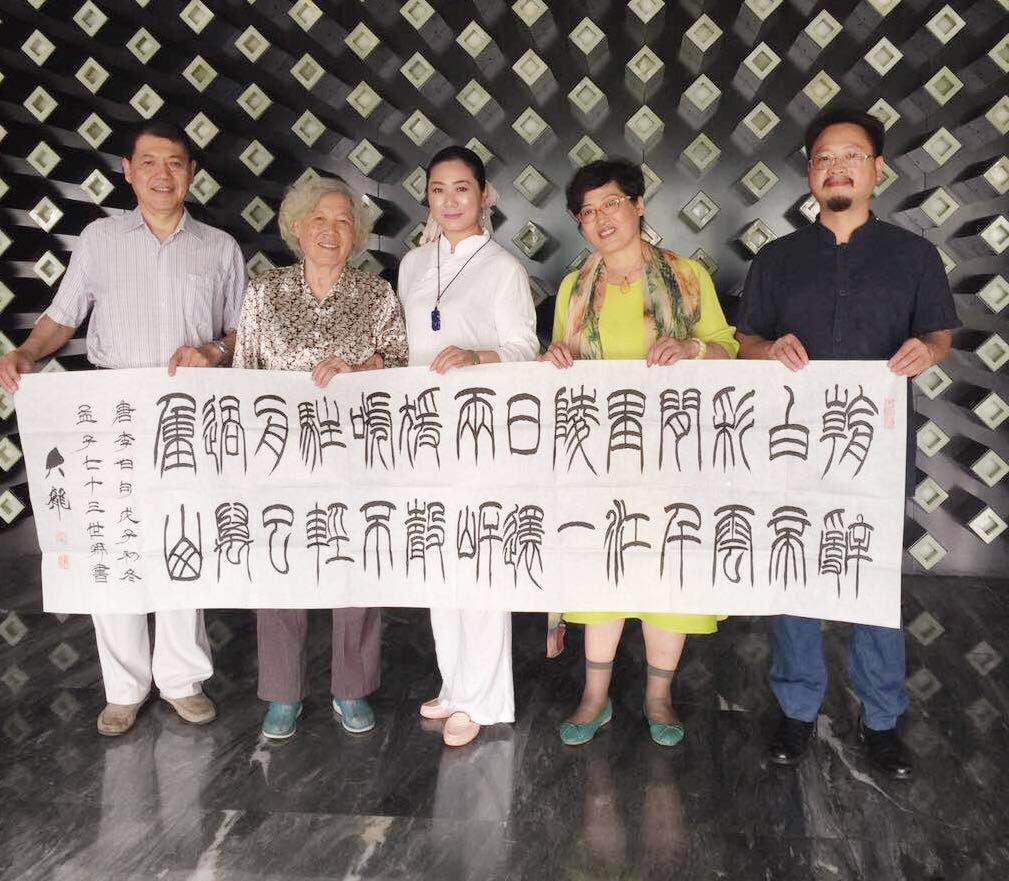 朝辭
白帝
彩雲
間千
里江
陵一
日還
兩岸
猨聲
嗁不
駐輕
舟已
過萬
重山
唐李白句戊子初冬
孟子七十三世孫書